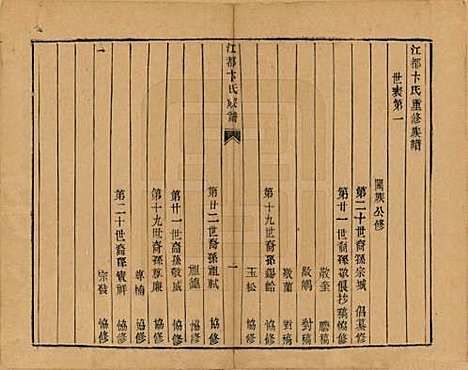 江都卞氏重修族譜
世表第一
闔族公修
第二十世裔孫宗城 倡纂修
第廿一世裔孫敬偃抄稿協修
敬奎 謄稿
敬鵰 對稿
敬蘭 對稿
第十九世裔孫錫齡 協修
玉松 協修
江都卞氏族譜
一
第廿二世裔孫祖軾 協修
祖鎬
第廿一世裔孫敬威 協修
第十九世裔孫尊廉 協修
尊楠 協修
第二十世裔孫實鮮 協修
宗發 協修